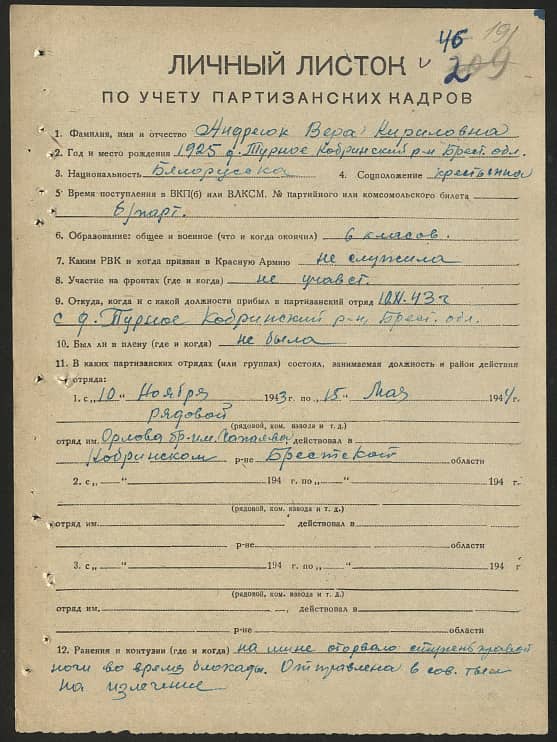 46 191
209
ЛИЧНЫЙ ЛИСТОК
ПО УЧЕТУ ПАРТИЗАНСКИХ КАДРОВ
1. Фамилия, имя и отчество Андреюк Вера Кириловна
2. Год и место рождения 1925 д. Турное Кобринский р-н Брест. обл.
3. Национальность Бялорусска 4. Соцположение крестьянка
5. Время поступления в ВКП(б) или ВЛКСМ. № партийного или комсомольского билета
б/парт.
6. Образование: общее и военное (что и когда окончил) 6 класов.
7. Каким РВК и когда призван в Красную Армию не служила
8. Участие на фронтах (где и когда) не учавст.
9. Откуда, когда и с какой должности прибыл в партизанский отряд 10.XI.43 г
с д. Турное Кобринский р-н, Брест. обл.
10. Был ли в плену (где и когда) не была
11. В каких партизанских отрядах (или группах) состоял, занимаемая должность и район действия
отряда:
1. с „10" Ноября 1943 г. по „15" Мая 1944 г.
рядовой
(рядовой, ком. взвода и т. д.)
отряд им. Орлова бр. им. Чапаева, действовал в
Кобринском р-не Брестской области
2. с „ " 194 г. по „ " 194 г.
(рядовой, ком. взвода и т. д.)
отряд им. действовал в
р-не области
3. с „ " 194 г. по „ " 194 г.
(рядовой, ком. взвода и т. д.)
отряд им. , действовал в
р-не области
12. Ранения и контузии (где и когда) на мине оторвало ступень правой
ноги во время блокады. Отправлена в сов. тыл
на излечение